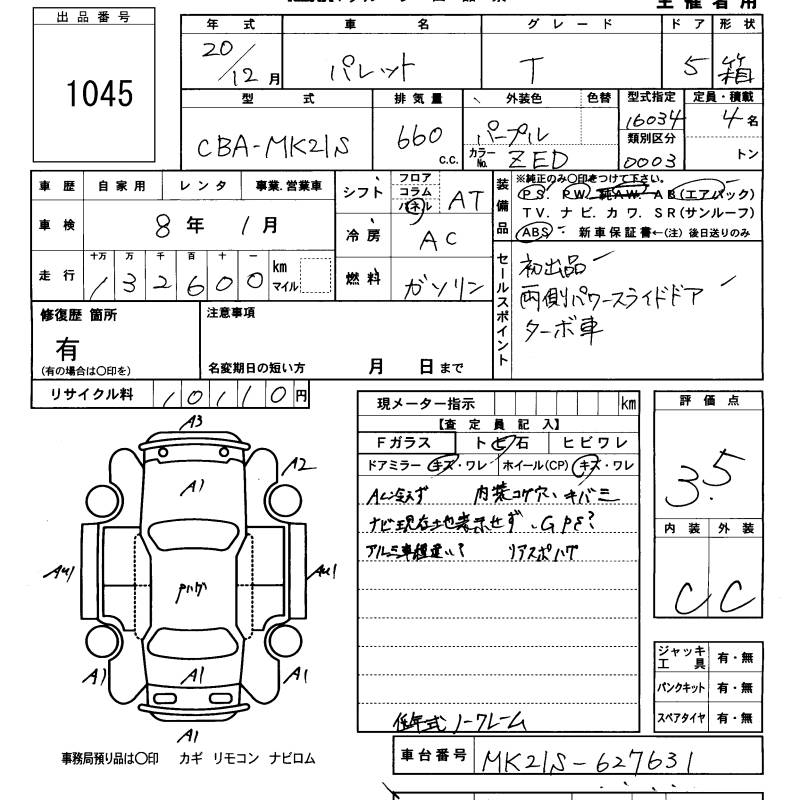 主催者用
出品番号
1045
年式 車名 グレード ドア 形状
20/12月 パレット T 5 箱
型式 排気量 外装色 色替 型式指定 定員・積載
CBA-MK21S 660 c.c. パープル 16034 4名
カラーNo. ZED 類別区分 0003 トン
車歴 自家用 レンタ 事業.営業車
車検 8年 1月
走行 十万 万 千 百 十 一
132600 km マイル
シフト フロア コラム パネル AT
冷房 AC
燃料 ガソリン
装備品 ※純正のみ○印をつけて下さい。
PS. PW. 純AW. AB(エアバック)
TV. ナビ. カワ. SR(サンルーフ)
ABS 新車保証書←(注)後日送りのみ
セールスポイント
初出品
両側パワースライドドア
ターボ車
修復歴 箇所
有
(有の場合は○印を)
注意事項
名変期日の短い方 月 日まで
リサイクル料 10110円
A3
A2
A1
AU1 Pハゲ AU1
A1 A1 A1
A1
事務局預り品は○印 カギ リモコン ナビロム
現メーター指示 km
【査定員記入】
Fガラス トビ石 ヒビワレ
ドアミラー キズ・ワレ ホイール(CP) キズ・ワレ
AC冷えず 内装コゲ穴、キバミ
ナビ現在地表示せず、GPS?
アルミ車種違い? リアスポハゲ
低年式ノークレーム
車台番号 MK21S-627631
評価点
3.5
内装 外装
C C
ジャッキ工具 有・無
パンクキット 有・無
スペアタイヤ 有・無